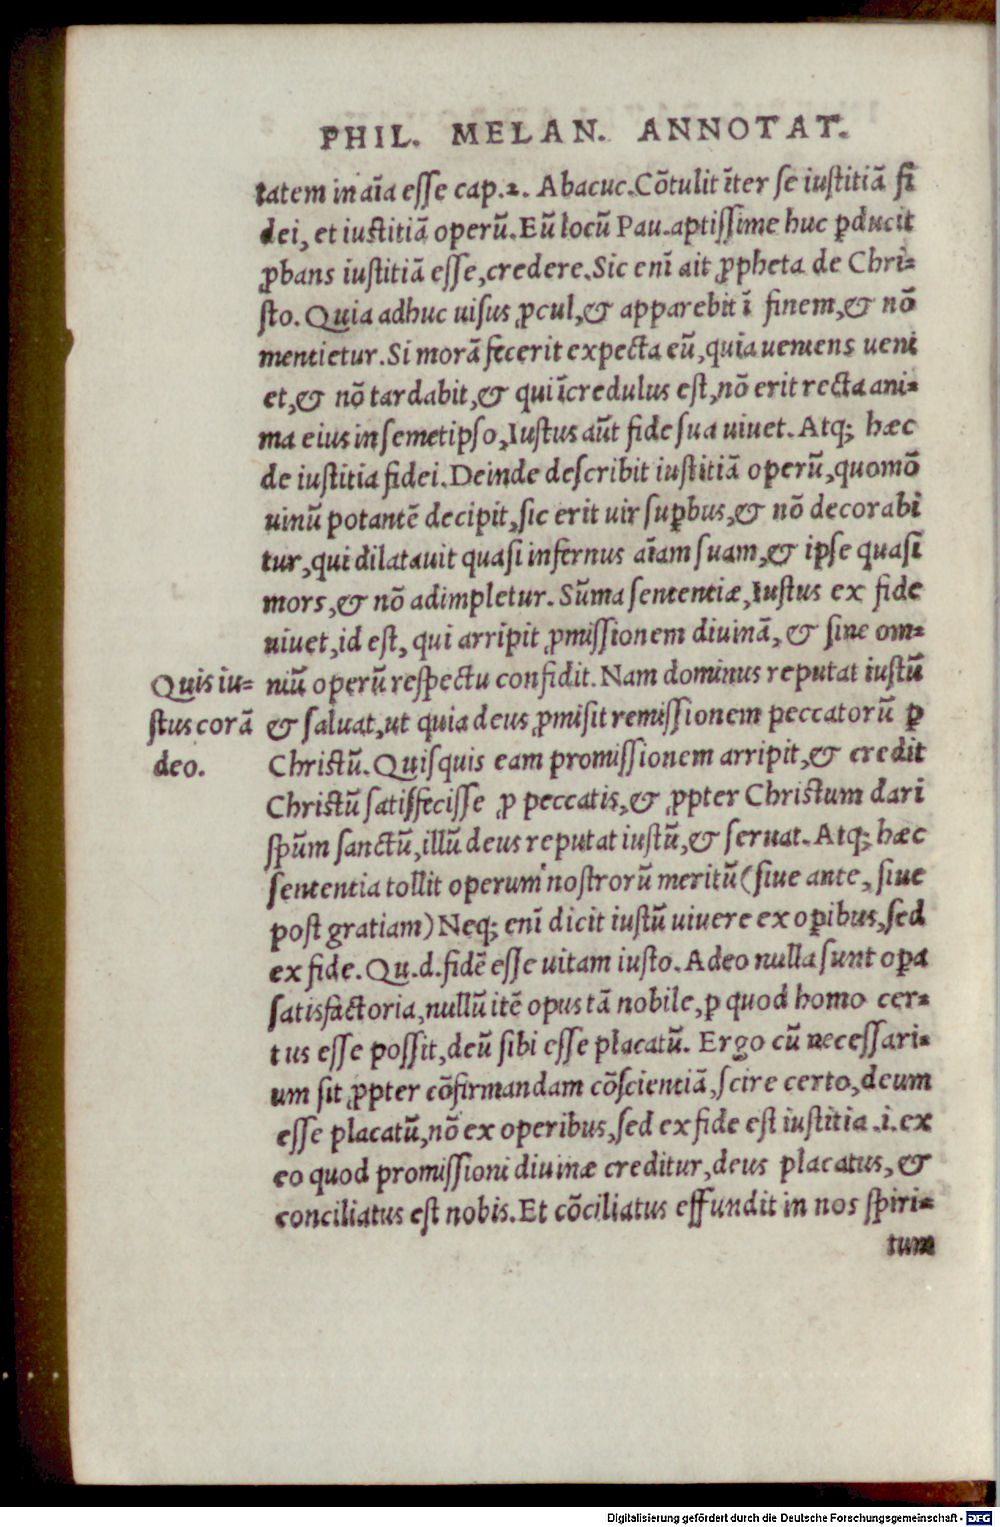 PHIL. MELAN. ANNOTAT.
tatem in aīa esse cap.2. Abacuc. Cōtulit īter se iustitiā fi
dei, et iustitiā operū. Eū locū Pau. aptissime huc ꝑducit
ꝓbans iustitiā esse, credere. Sic enī ait ꝓpheta de Chri-
sto. Quia adhuc uisus ꝓcul, & apparebit ī finem, & nō
mentietur. Si morā fecerit expecta eū, quia ueniens ueni
et, & nō tardabit, & qui īcredulus est, nō erit recta ani-
ma eius in semetipso, Iustus aūt fide sua uiuet. Atq; hæc
de iustitia fidei. Deinde describit iustitiā operū, quomō
uinū potantē decipit, sic erit uir suꝑbus, & nō decorabi
tur, qui dilatauit quasi infernus aīam suam, & ipse quasi
mors, & nō adimpletur. Sūma sententiæ, Iustus ex fide
uiuet, id est, qui arripit ꝓmissionem diuinā, & sine om-
Quis iu- niū operū respectu confidit. Nam dominus reputat iustū
stus corā & saluat, ut quia deus ꝓmisit remissionem peccatorū ꝑ
deo. Christū. Quisquis eam promissionem arripit, & credit
Christū satisfecisse ꝓ peccatis, & ꝓpter Christum dari
spūm sanctū, illū deus reputat iustū, & seruat. Atq; hæc
sententia tollit operum nostrorū meritū (siue ante, siue
post gratiam) Neq; enī dicit iustū uiuere ex oꝑibus, sed
ex fide. Qu. d. fidē esse uitam iusto. Adeo nulla sunt oꝑa
satisfactoria, nullū itē opus tā nobile, ꝑ quod homo cer-
tus esse possit, deū sibi esse placatū. Ergo cū necessari-
um sit ꝓpter cōfirmandam cōscientiā, scire certo, deum
esse placatū, nō ex operibus, sed ex fide est iustitia .i. ex
eo quod promissioni diuinæ creditur, deus placatus, &
conciliatus est nobis. Et cōciliatus effundit in nos spiri-
tum
Digitalisierung gefördert durch die Deutsche Forschungsgemeinschaft - DFG